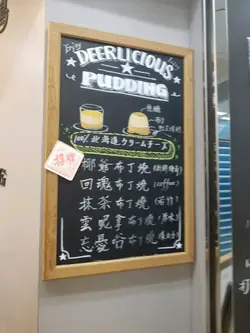 Enjoy
DEERLICIOUS
PUDDING
100%北海道クリームチーズ
招牌
椰爺布丁燒
回魂布丁燒 (coffee)
抹茶布丁燒
雲呢拿布丁燒
忘憂谷布丁燒